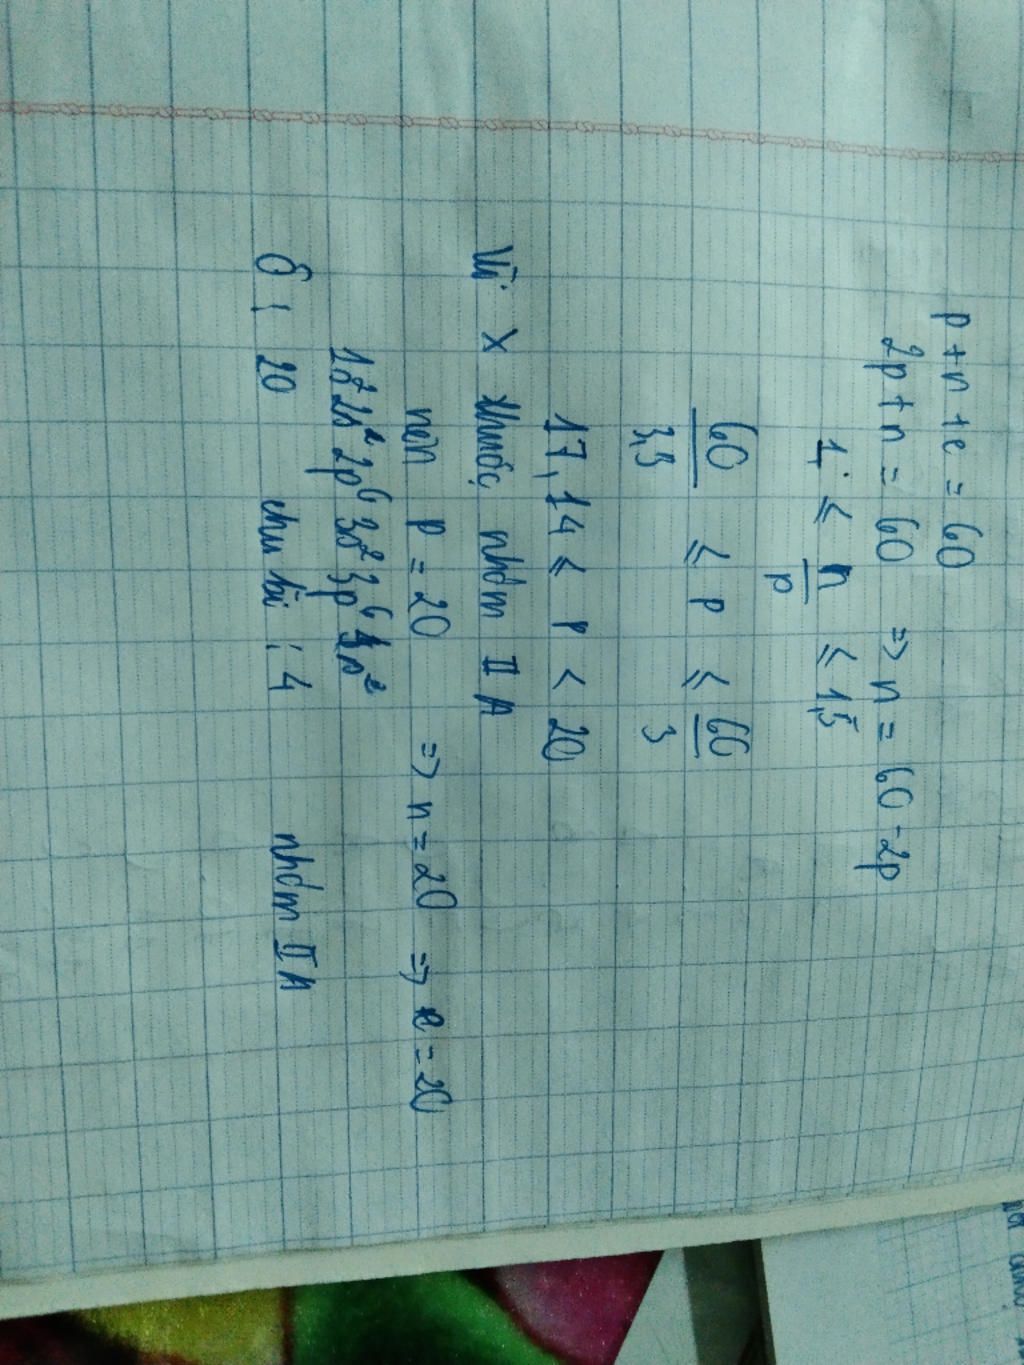 p + n + e = 60
2p + n = 60 => n = 60 - 2p
1 ≤ n/p ≤ 1,5
60/3,5 ≤ p ≤ 60/3
17,14 ≤ p < 20
Vì X thuộc nhóm II A
nên p = 20 => n = 20 => e = 20
1s² 2s² 2p⁶ 3s² 3p⁶ 4s²
Ô : 20 chu kì : 4 nhóm II A